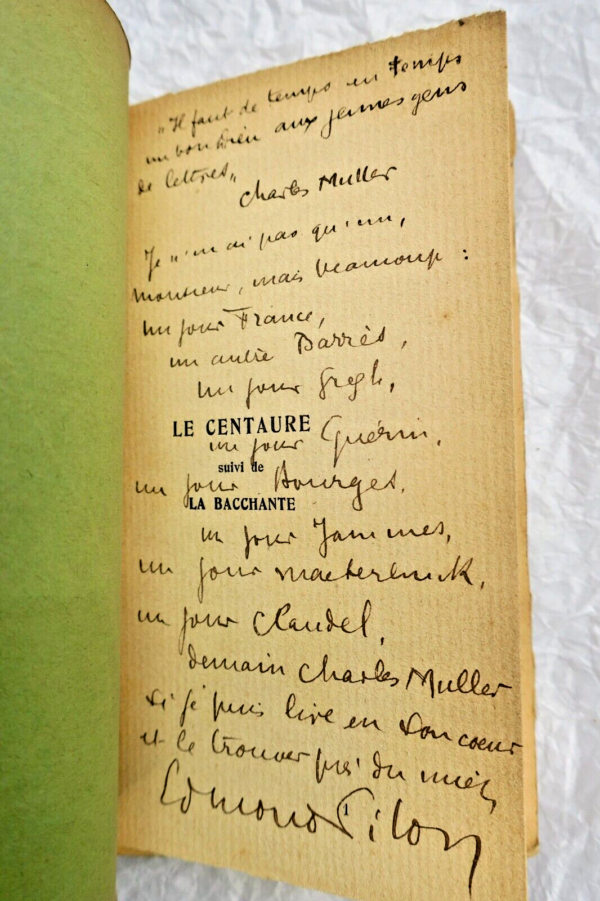 "Il faut de temps en temps
un bon Dieu aux jeunes gens
de lettres"
Charles Muller
Je n'en ai pas qu'un,
monsieur, mais beaucoup :
un jour France,
un autre Barrès,
un jour Gregh,
LE CENTAURE
un jour Guérin,
suivi de
un jour Bourges,
LA BACCHANTE
un jour Jammes,
un jour Maeterlinck,
un jour Claudel,
demain Charles Muller
si je puis lire en son cœur
et le trouver près du mien,
Edmond Pilon
1